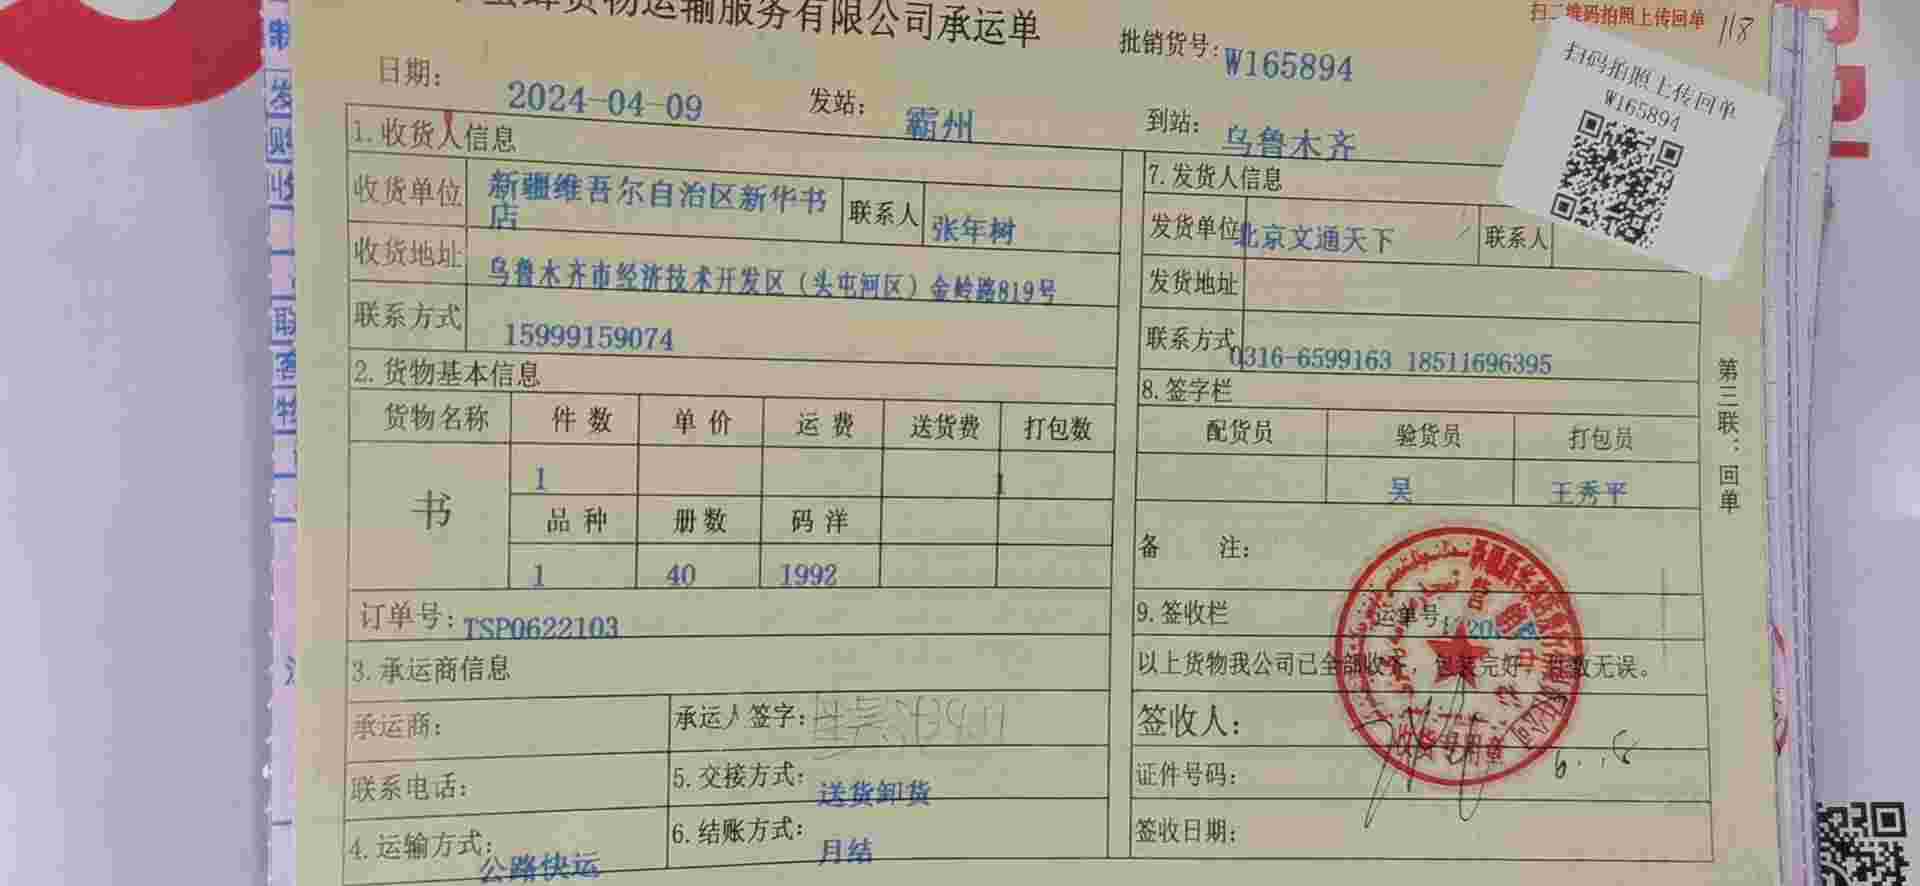 货物运输服务有限公司承运单
扫二维码拍照上传回单 118
批销货号: W165894
扫码拍照上传回单
W165894
日期: 2024-04-09 发站: 霸州 到站: 乌鲁木齐
1.收货人信息
收货单位 新疆维吾尔自治区新华书店 联系人 张年树
收货地址 乌鲁木齐市经济技术开发区（头屯河区）金岭路819号
联系方式 15999159074
2.货物基本信息
货物名称 件数 单价 运费 送货费 打包数
书 1 1
品种 册数 码洋
1 40 1992
订单号: TSP0622103
3.承运商信息
承运商: 承运人签字:
联系电话: 5.交接方式: 送货卸货
4.运输方式: 公路快运 6.结账方式: 月结
7.发货人信息
发货单位 北京文通天下 联系人
发货地址
联系方式 0316-6599163 18511696395
8.签字栏
配货员 验货员 打包员
吴 王秀平
备 注:
9.签收栏 运单号:
以上货物我公司已全部收齐，包装完好，件数无误。
签收人:
证件号码:
签收日期:
收货专用章
第三联：回单